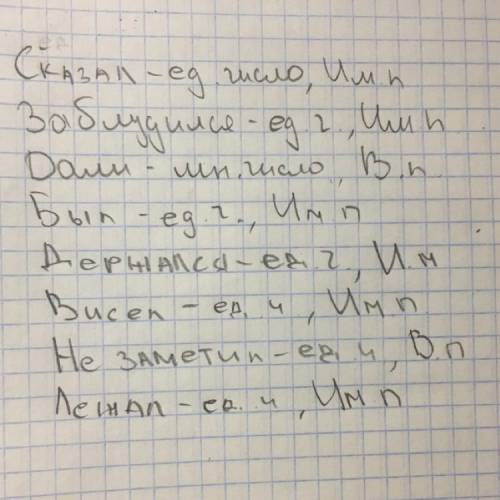 Сказал - ед. число, Им.п
Заблудился - ед. ч., Им п
Дали - мн. число, В.п
Был - ед. ч., Им п
Держался - ед. ч, И.м
Висел - ед. ч, Им п
Не заметил - ед. ч, В.п
Лежал - ед. ч, Им п